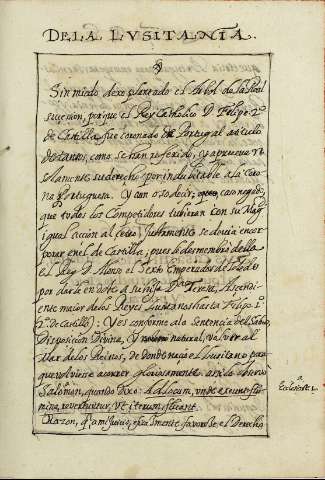 DE LA LVSITANIA.
Sin miedo dexo plantado el Arbol de la Real
sucession, porque el Rey Catholico D. Felipe 2.º
de Castilla fue coronado de Portugal a titulo
de tantos, como se han referido, y aprueuo
solamente su derecho por indubitable a la Coro
na Portuguesa. Y aun oso decir, que, caso negado,
que todos los Competidores tubieran con su Mag.
igual accion al cetro, justamente se deuia encor
porar en el de Castilla; pues le desmembró della
el Rey D. Alonso el Sexto Emperador de Toledo
por darle en dote a su hija D. Teresa, Ascendi
ente maior de los Reyes Lusitanos hasta Filipo 1.º
(2.º de Castilla): Y es conforme a la Sentencia del Sabio,
Disposicion Divina, y natural, valuer al
Mar de los Reinos, de donde nacio el Lusitano para
que volviese a correr gloriosamente. Assi lo observó
Salomon, quando dixo: Ad locum, unde exeunt flu
mina, revertuntur, ut iterum fluant.
Razon, que a mi juicio, igualmente favorece el Derecho
a
Ecclesiast. 1.